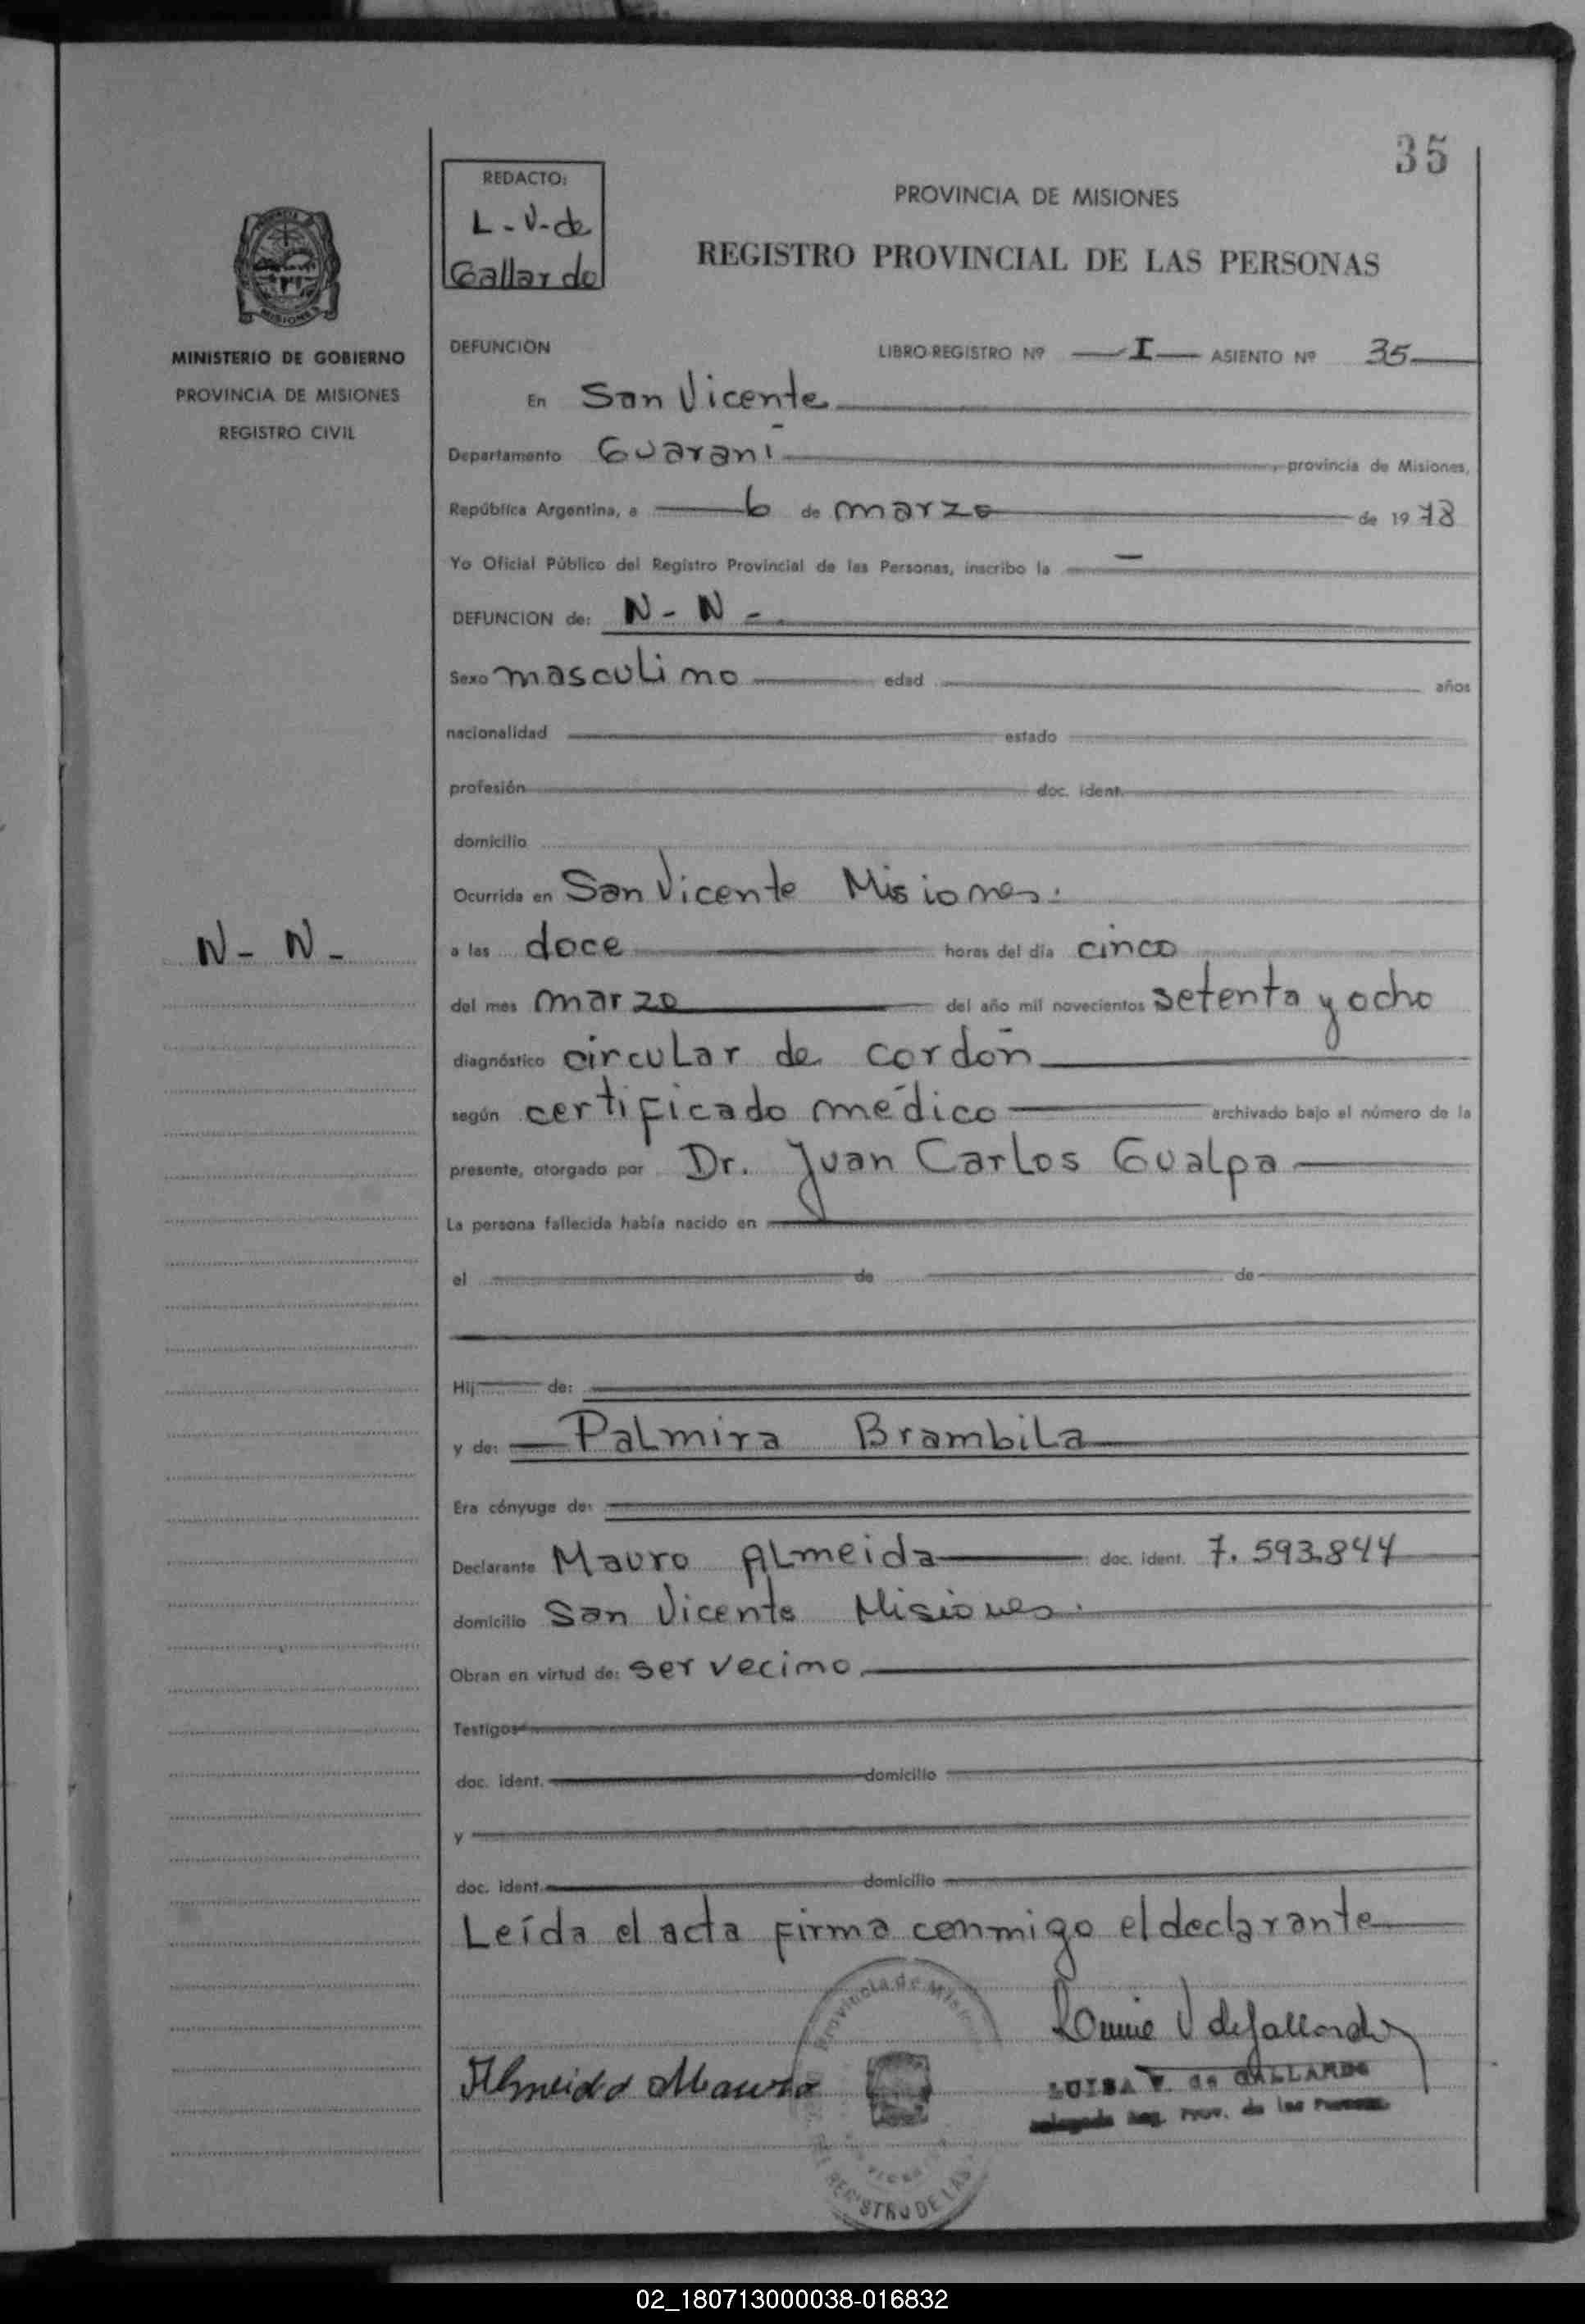 35
REDACTO:
L-V-de
Gallardo
PROVINCIA DE MISIONES
REGISTRO PROVINCIAL DE LAS PERSONAS
MISIONES
MINISTERIO DE GOBIERNO
PROVINCIA DE MISIONES
REGISTRO CIVIL
DEFUNCION LIBRO-REGISTRO Nº I ASIENTO Nº 35
En San Vicente
Departamento Guaraní, provincia de Misiones,
República Argentina, a 6 de marzo de 1978
Yo Oficial Público del Registro Provincial de las Personas, inscribo la
DEFUNCION de: N-N-
Sexo masculino edad años
nacionalidad estado
profesión doc. ident.
domicilio
Ocurrida en San Vicente Misiones.
N-N-
a las doce horas del día cinco
del mes marzo del año mil novecientos setenta y ocho
diagnóstico circular de cordón
según certificado médico archivado bajo el número de la
presente, otorgado por Dr. Juan Carlos Gualpa
La persona fallecida había nacido en
el de de
Hij de:
y de: Palmira Brambila
Era cónyuge de:
Declarante Mauro Almeida doc. ident. 7.593.844
domicilio San Vicente Misiones.
Obran en virtud de: ser vecino.
Testigos
doc. ident. domicilio
y
doc. ident. domicilio
Leída el acta firma conmigo el declarante
Provincia de
Almeida Mauro
V de Gallardo
LUISA V. de GALLARDO
Reg. Prov. de las
REGISTRO DE LAS
02_180713000038-016832